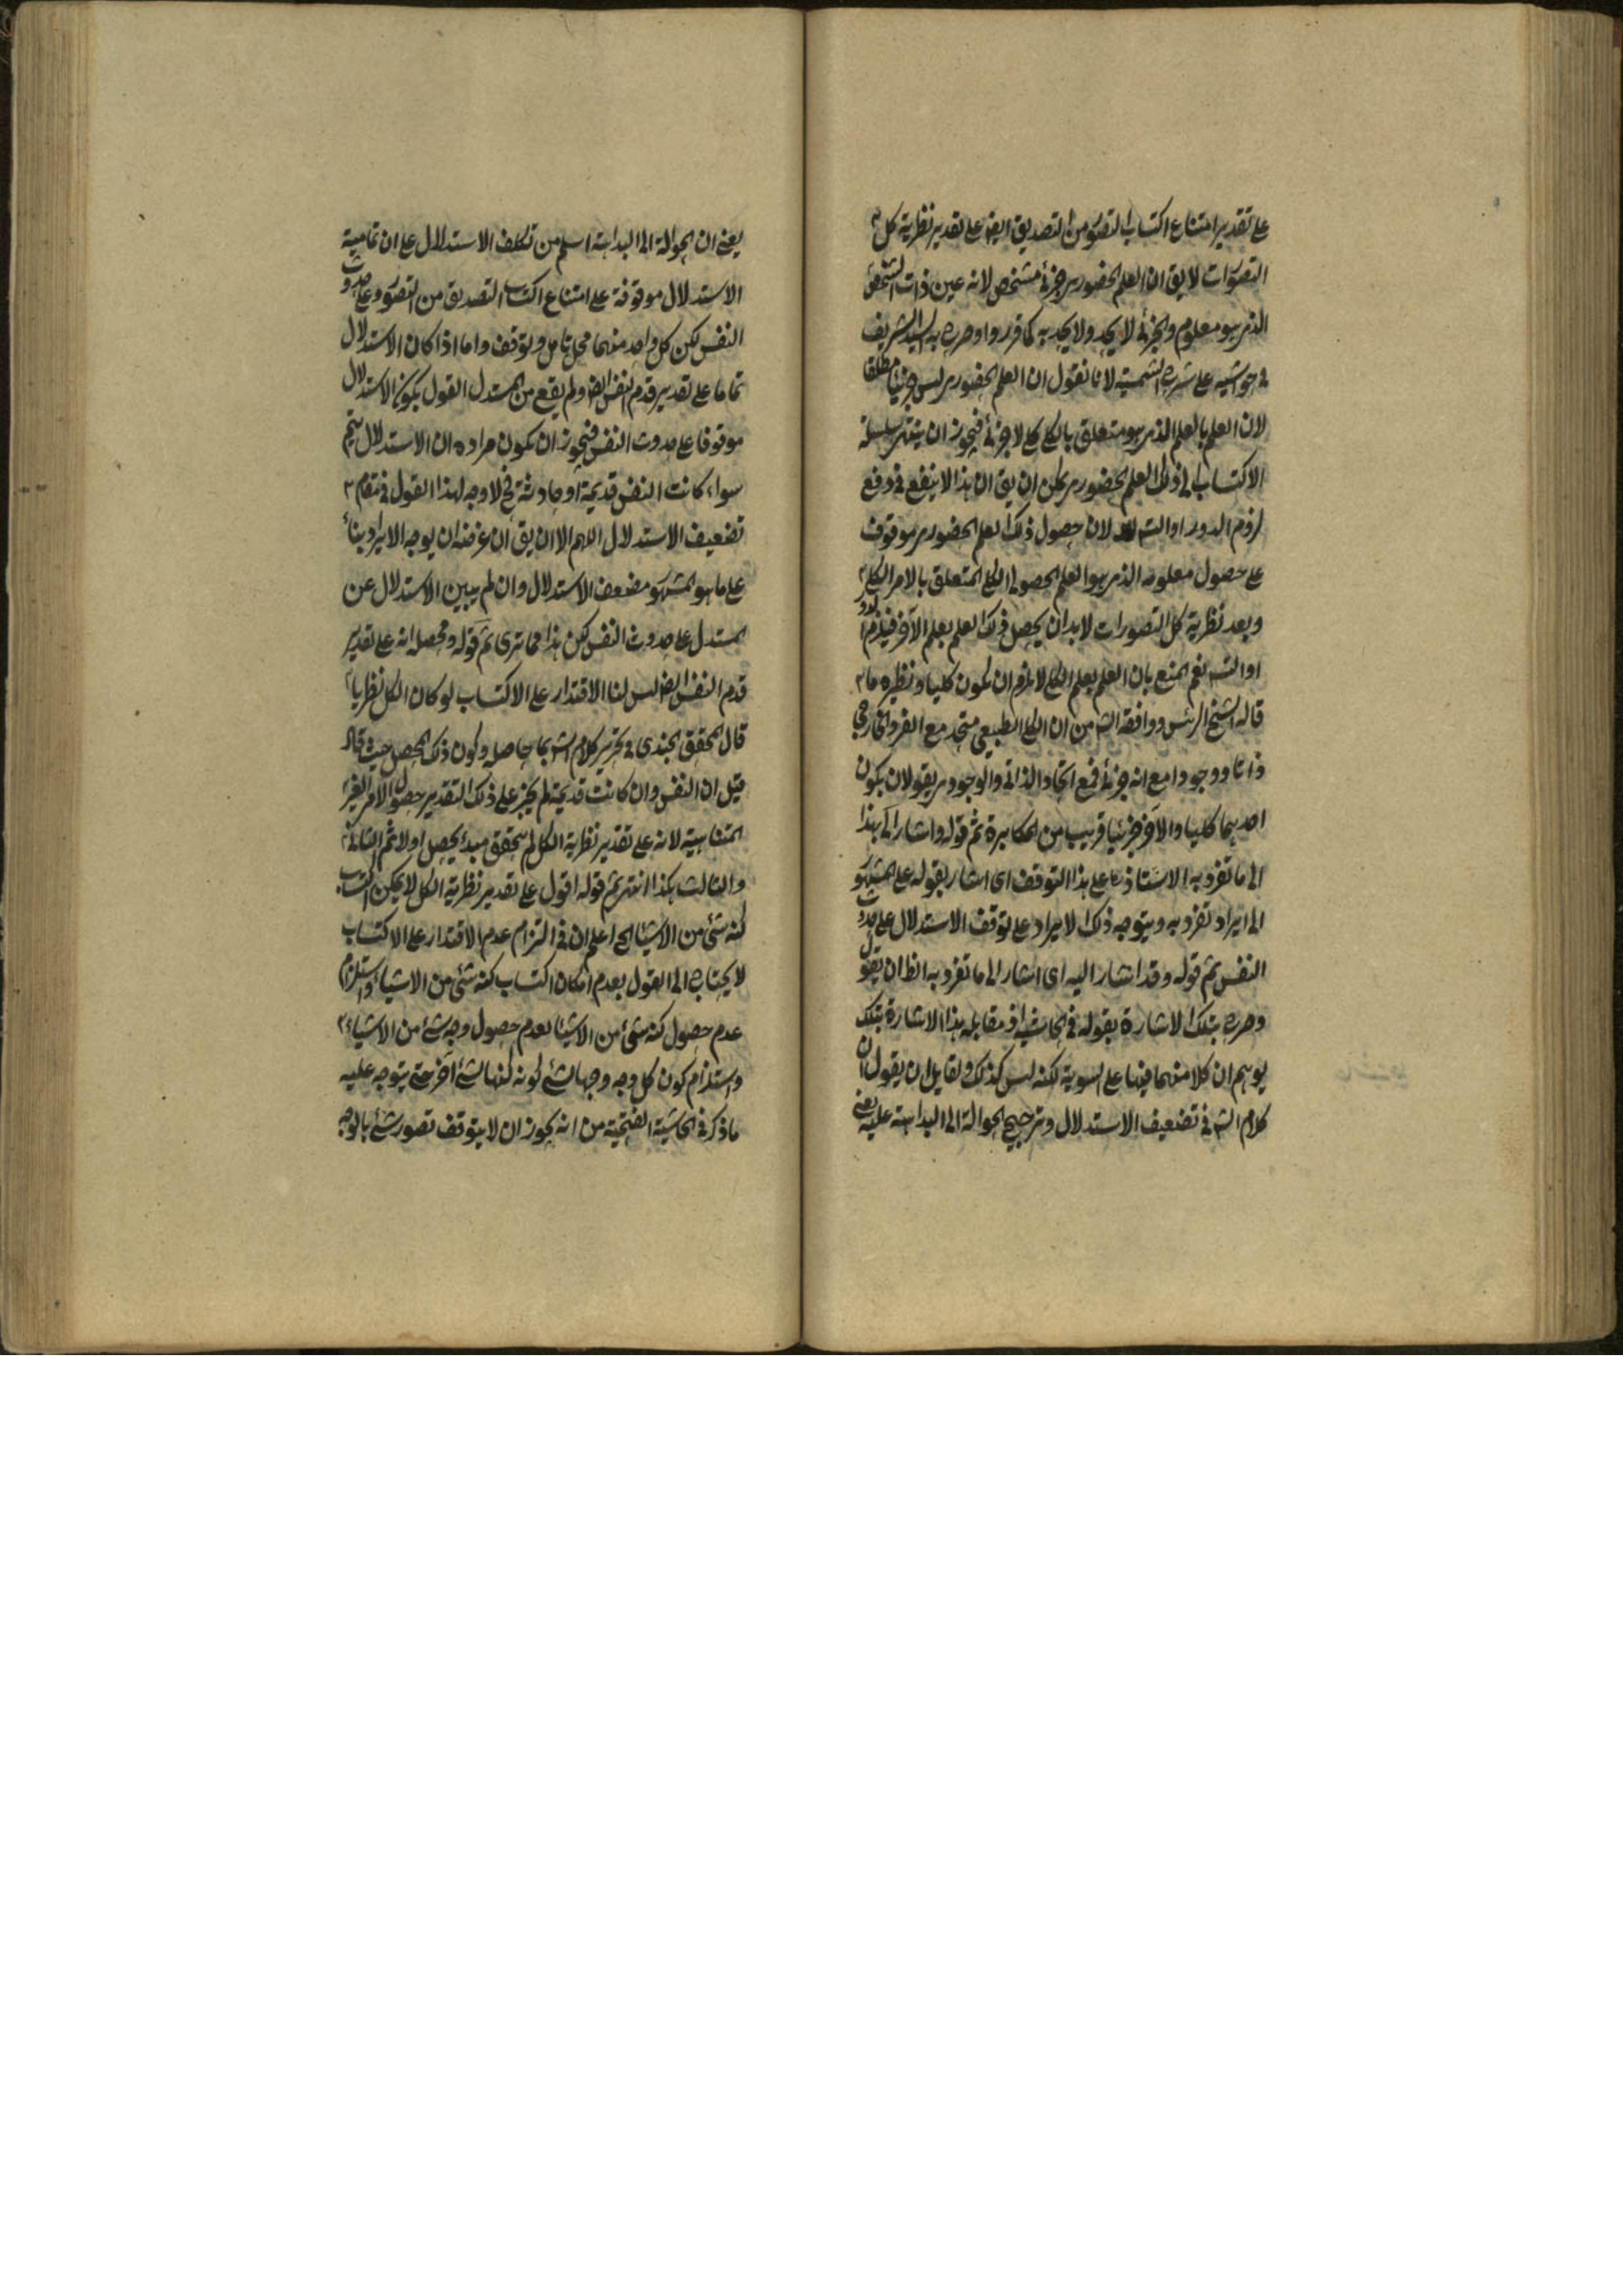 على تقدير امتناع اكتساب التصور من التصديق ايضا على تقدير نظرية كل
التصورات لا يق ان العلم الحضورى جزئى مشخص لانه عين ذات الشخص
الذى هو معلوم والجزئى لا يحد ولا يحد به كما قرروا وصرح به السيد الشريف
فى حواشيه على شرح الشمسية لانا نقول ان العلم الحضورى ليس جزئيا مطلقا
لان العلم بالعلم الذى هو متعلق بالكلى كلى لا جزئى فيجوز ان ينتهى سلسلة
الاكتساب الى ذلك العلم الحضورى يمكن ان يق ان هذا لا ينفع فى دفع
لزوم الدور او التسـ لان حصول ذلك العلم الحضورى موقوف
على حصول معلومه الذى هو العلم الحصولى الكلى المتعلق بالامر الكلى
وبعد نظرية كل التصورات لا بد ان يحصل ذلك العلم بعلم الآخر فيلزم الدور
او التسـ نعم المنع بان العلم بعلم الكلى لا يلزم ان يكون كليا ونظيره ما
قاله الشيخ الرئس ووافقه الشـ من ان الكلى الطبيعى متحد مع الفرد الخارجى
ذاتا ووجودا مع انه جزئى فمع اتحاد الذاتى والوجودى يقولان بكون
احديهما كليا والآخر جزئيا قريب من المكابرة ثم قوله واشار الى هذا
الى ما تفرد به الاستاذ على هذا التوقف اى اشار بقوله على المشهور
الى ايراد تفرد به ويتوجه ذلك الايراد على توقف الاستدلال على حدوث
النفس ثم قوله وقد اشار اليه اى اشار الى ما تفرد به الظ ان يقول
وصرح بتلك الاشارة بقوله فى الحاشية اذ مقابله هذا الاشارة بتلك
يوهم ان كلا منهما فيها على السوية لكنه ليس كذلك ولقايل ان يقول ان
كلام الشـ فى تضعيف الاستدلال وترجيح الحوالة الى البداهة عليه يعنى
يعنى ان الحوالة الى البداهة اسلم من تكلف الاستدلال على ان تمامية
الاستدلال موقوفة على امتناع اكتساب التصديق من التصور وعلى حدوث
النفس لكن كل واحد منهما محل تامل وتوقف واما اذا كان الاستدلال
تماما على تقدير قدم النفس ايضا ولم يقع من المستدل القول بكون الاستدلال
موقوفا على حدوث النفس فيجوز ان يكون مراده ان الاستدلال يتم
سواء كانت النفس قديمة او حادثة فح لا وجه لهذا القول فى مقام
تضعيف الاستدلال اللهم الا ان يق ان غرضه ان يوجه الايراد بناء
على ما هو المشهور مضعف الاستدلال وان لم يبين الاستدلال عن
المستدل على حدوث النفس لكن هذا مما ترى ثم قوله ومحصله انه على تقدير
قدم النفس ايضا ليس لنا الاقتدار على الاكتساب لو كان الكل نظريا
قال المحقق الجندى فى تحرير كلام الشـ بما حاصله ويكون ذلك المحصل حيث قال
قيل ان النفس وان كانت قديمة لم يجز على ذلك التقدير حصول الامر الغير
المتناهية لانه على تقدير نظرية الكل لم يتحقق مبدئ يحصل اولا ثم الثانى
والثالث هكذا انتهى ثم قوله اقول على تقدير نظرية الكل لا يمكن اكتساب
كنه شئ من الاشيا الح اعلم ان فى التزام عدم الاقتدار على الاكتساب
لا يحتاج الى القول بعدم امكان اكتساب كنه شئ من الاشياء واستلزام
عدم حصول كنه شئ من الاشيا لعدم حصول وجه شئ من الاشياء
واستلزام كون كل وجه وجها لشئ كونه كنها لشئ آخر حتى يتوجه عليه
ما ذكر فى الحاشية الفتحية من انه يجوز ان لا يتوقف تصور شئ بالوجه